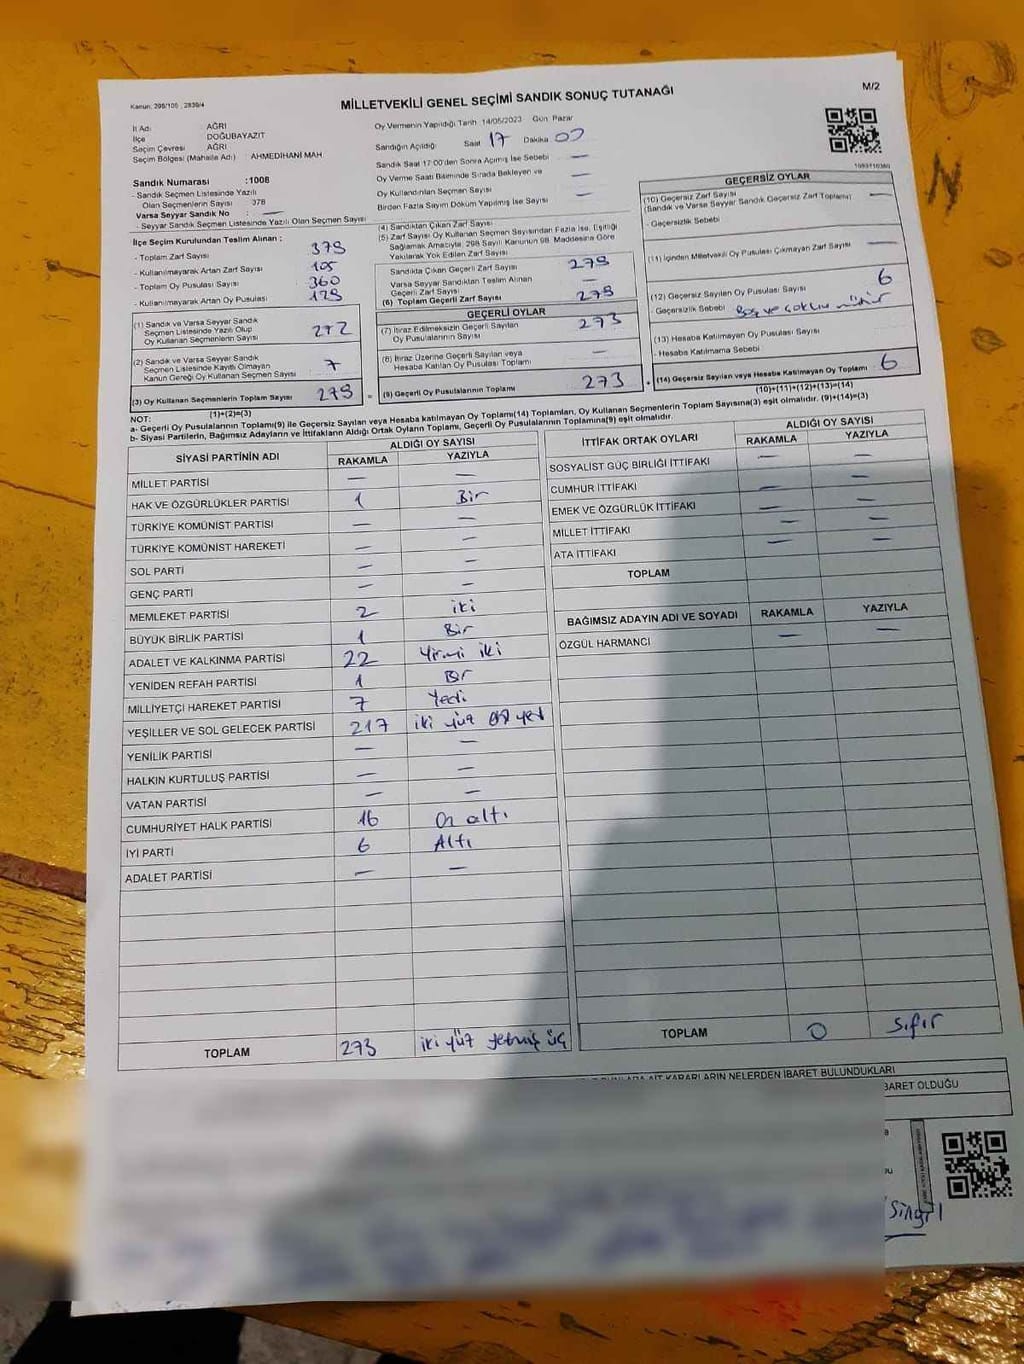 Kanun: 298/105 , 2839/4
MİLLETVEKİLİ GENEL SEÇİMİ SANDIK SONUÇ TUTANAĞI
M/2
İl Adı : AĞRI
İlçe DOĞUBAYAZIT
Seçim Çevresi AĞRI
Seçim Bölgesi (Mahalle Adı) : AHMEDİHANİ MAH
Oy Vermenin Yapıldığı Tarih 14/05/2023 Gün Pazar
Sandığın Açıldığı Saat 17 Dakika 00
Sandık Saat 17:00'den Sonra Açılmış İse Sebebi —
Oy Verme Saati Bitiminde Sırada Bekleyen ve
Oy Kullandırılan Seçmen Sayısı —
Birden Fazla Sayım Döküm Yapılmış İse Sayısı —
Sandık Numarası :1008
- Sandık Seçmen Listesinde Yazılı
Olan Seçmenlerin Sayısı 378
Varsa Seyyar Sandık No : —
- Seyyar Sandık Seçmen Listesinde Yazılı Olan Seçmen Sayısı
İlçe Seçim Kurulundan Teslim Alınan :
- Toplam Zarf Sayısı
- Kullanılmayarak Artan Zarf Sayısı 105
- Toplam Oy Pusulası Sayısı 360
- Kullanılmayarak Artan Oy Pusulası
(1) Sandık ve Varsa Seyyar Sandık
Seçmen Listesinde Yazılı Olup
Oy Kullanan Seçmenlerin Sayısı 272
(2) Sandık ve Varsa Seyyar Sandık
Seçmen Listesinde Kayıtlı Olmayan
Kanun Gereği Oy Kullanan Seçmen Sayısı 7
(3) Oy Kullanan Seçmenlerin Toplam Sayısı 279
(1)+(2)=(3)
(4) Sandıktan Çıkan Zarf Sayısı
(5) Zarf Sayısı Oy Kullanan Seçmen Sayısından Fazla İse, Eşitliği
Sağlamak Amacıyla, 298 Sayılı Kanunun 98. Maddesine Göre
Yakılarak Yok Edilen Zarf Sayısı
Sandıkta Çıkan Geçerli Zarf Sayısı 279
Varsa Seyyar Sandıktan Teslim Alınan
Geçerli Zarf Sayısı —
(6) Toplam Geçerli Zarf Sayısı 279
GEÇERLİ OYLAR
(7) İtiraz Edilmeksizin Geçerli Sayılan
Oy Pusulalarının Sayısı 273
(8) İtiraz Üzerine Geçerli Sayılan veya
Hesaba Katılan Oy Pusulası Toplamı —
(9) Geçerli Oy Pusulalarının Toplamı 273
GEÇERSİZ OYLAR
(10) Geçersiz Zarf Sayısı
(Sandık ve Varsa Seyyar Sandık Geçersiz Zarf Toplamı) —
- Geçersizlik Sebebi
(11) İçinden Milletvekili Oy Pusulası Çıkmayan Zarf Sayısı —
(12) Geçersiz Sayılan Oy Pusulası Sayısı 6
- Geçersizlik Sebebi Boş ve çoklu mühür
(13) Hesaba Katılmayan Oy Pusulası Sayısı
- Hesaba Katılmama Sebebi
(14) Geçersiz Sayılan veya Hesaba Katılmayan Oy Toplamı 6
(10)+(11)+(12)+(13)=(14)
NOT:
a- Geçerli Oy Pusulalarının Toplamı(9) ile Geçersiz Sayılan veya Hesaba katılmayan Oy Toplamı(14) Toplamları, Oy Kullanan Seçmenlerin Toplam Sayısına(3) eşit olmalıdır. (9)+(14)=(3)
b- Siyasi Partilerin, Bağımsız Adayların ve İttifakların Aldığı Ortak Oyların Toplamı, Geçerli Oy Pusulalarının Toplamına(9) eşit olmalıdır.
SİYASİ PARTİNİN ADI ALDIĞI OY SAYISI
RAKAMLA YAZIYLA
MİLLET PARTİSİ — —
HAK VE ÖZGÜRLÜKLER PARTİSİ 1 Bir
TÜRKİYE KOMÜNİST PARTİSİ — —
TÜRKİYE KOMÜNİST HAREKETİ — —
SOL PARTİ — —
GENÇ PARTİ — —
MEMLEKET PARTİSİ 2 iki
BÜYÜK BİRLİK PARTİSİ 1 Bir
ADALET VE KALKINMA PARTİSİ 22 Yirmi iki
YENİDEN REFAH PARTİSİ 1 Bir
MİLLİYETÇİ HAREKET PARTİSİ 7 Yedi
YEŞİLLER VE SOL GELECEK PARTİSİ 217 iki yüz
YENİLİK PARTİSİ — —
HALKIN KURTULUŞ PARTİSİ — —
VATAN PARTİSİ — —
CUMHURİYET HALK PARTİSİ 16 On altı
İYİ PARTİ 6 Altı
ADALET PARTİSİ — —
TOPLAM 273 iki yüz yetmiş üç
İTTİFAK ORTAK OYLARI ALDIĞI OY SAYISI
RAKAMLA YAZIYLA
SOSYALİST GÜÇ BİRLİĞİ İTTİFAKI — —
CUMHUR İTTİFAKI — —
EMEK VE ÖZGÜRLÜK İTTİFAKI — —
MİLLET İTTİFAKI — —
ATA İTTİFAKI — —
TOPLAM
BAĞIMSIZ ADAYIN ADI VE SOYADI RAKAMLA YAZIYLA
ÖZGÜL HARMANCI — —
TOPLAM 0 sıfır
KARARLARIN NELERDEN İBARET BULUNDUKLARI
BARET OLDUĞU